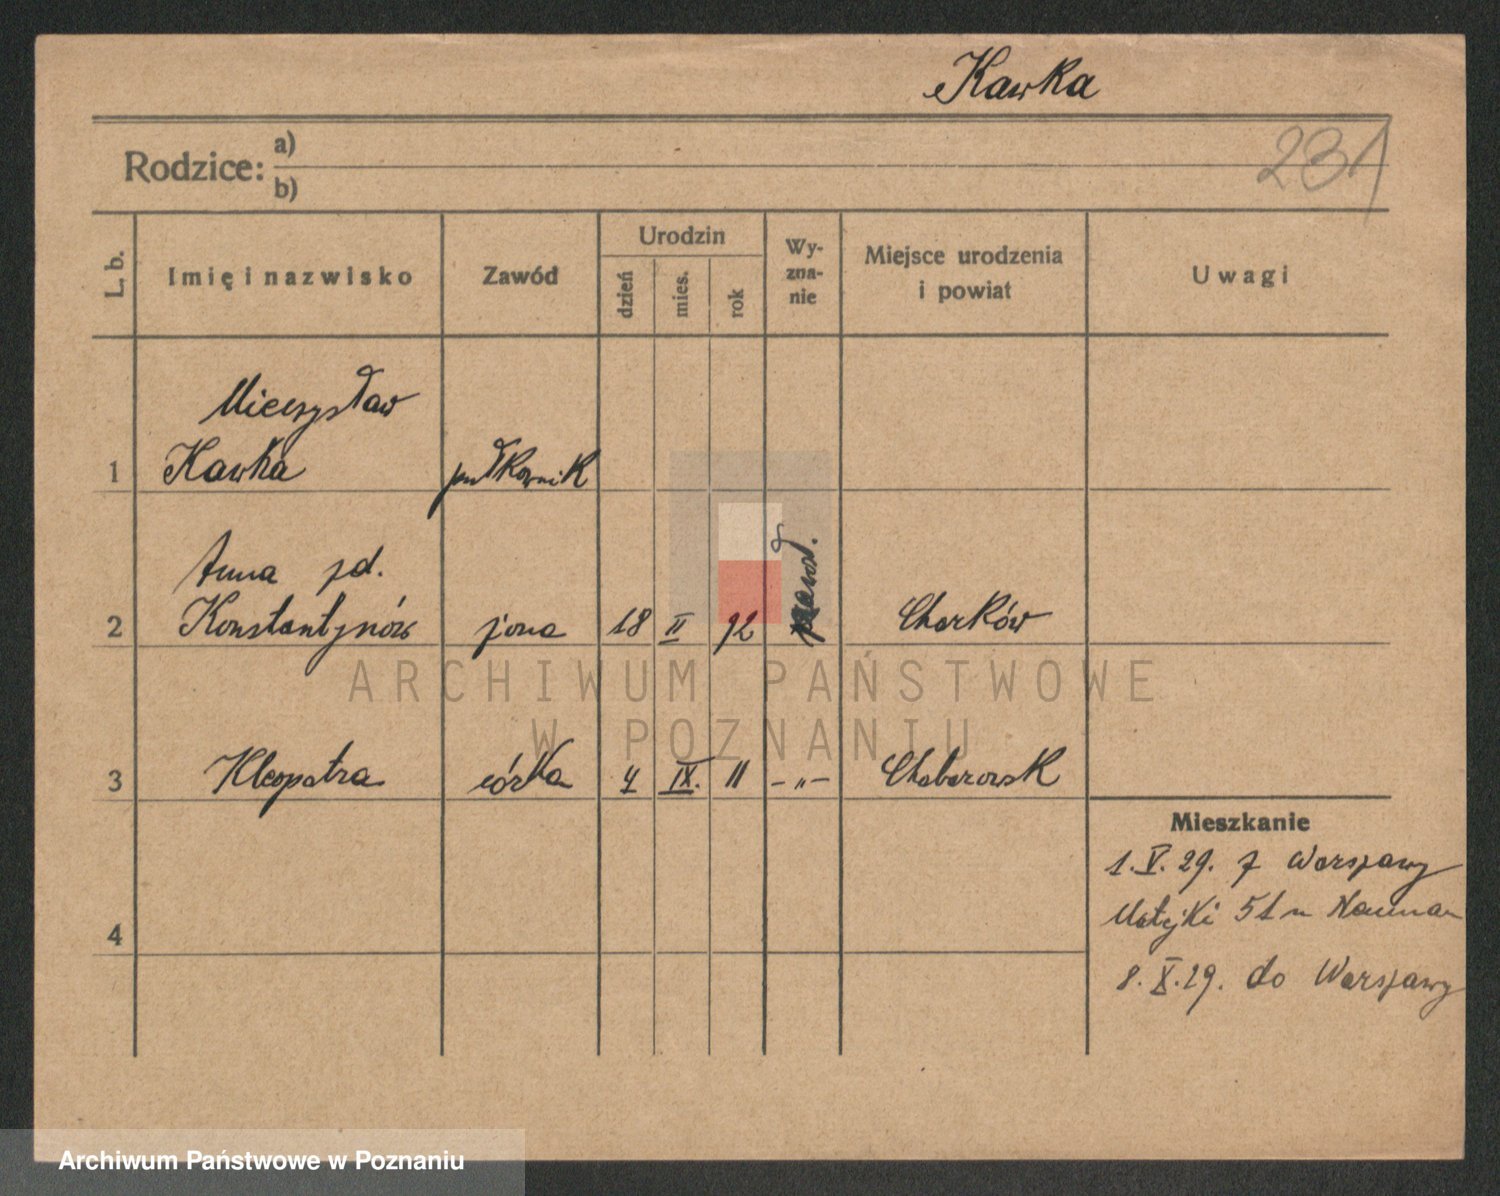 Kawka
231
Rodzice: a)
b)
L. b.
Imię i nazwisko
Zawód
Urodzin
dzień
mies.
rok
Wy-
zna-
nie
Miejsce urodzenia
i powiat
Uwagi
Mieczysław
1 Kawka pułkownik
Anna zd.
2 Konstantynów żona 18 II 92 prawosł. Charków
3 Kleopatra córka 4 IX. 11 -„- Chabarowsk
4
Mieszkanie
1.V.29. z Warszawy
Matejki 51 u
8.X.29. do Warszawy
ARCHIWUM PAŃSTWOWE
W POZNANIU
Archiwum Państwowe w Poznaniu